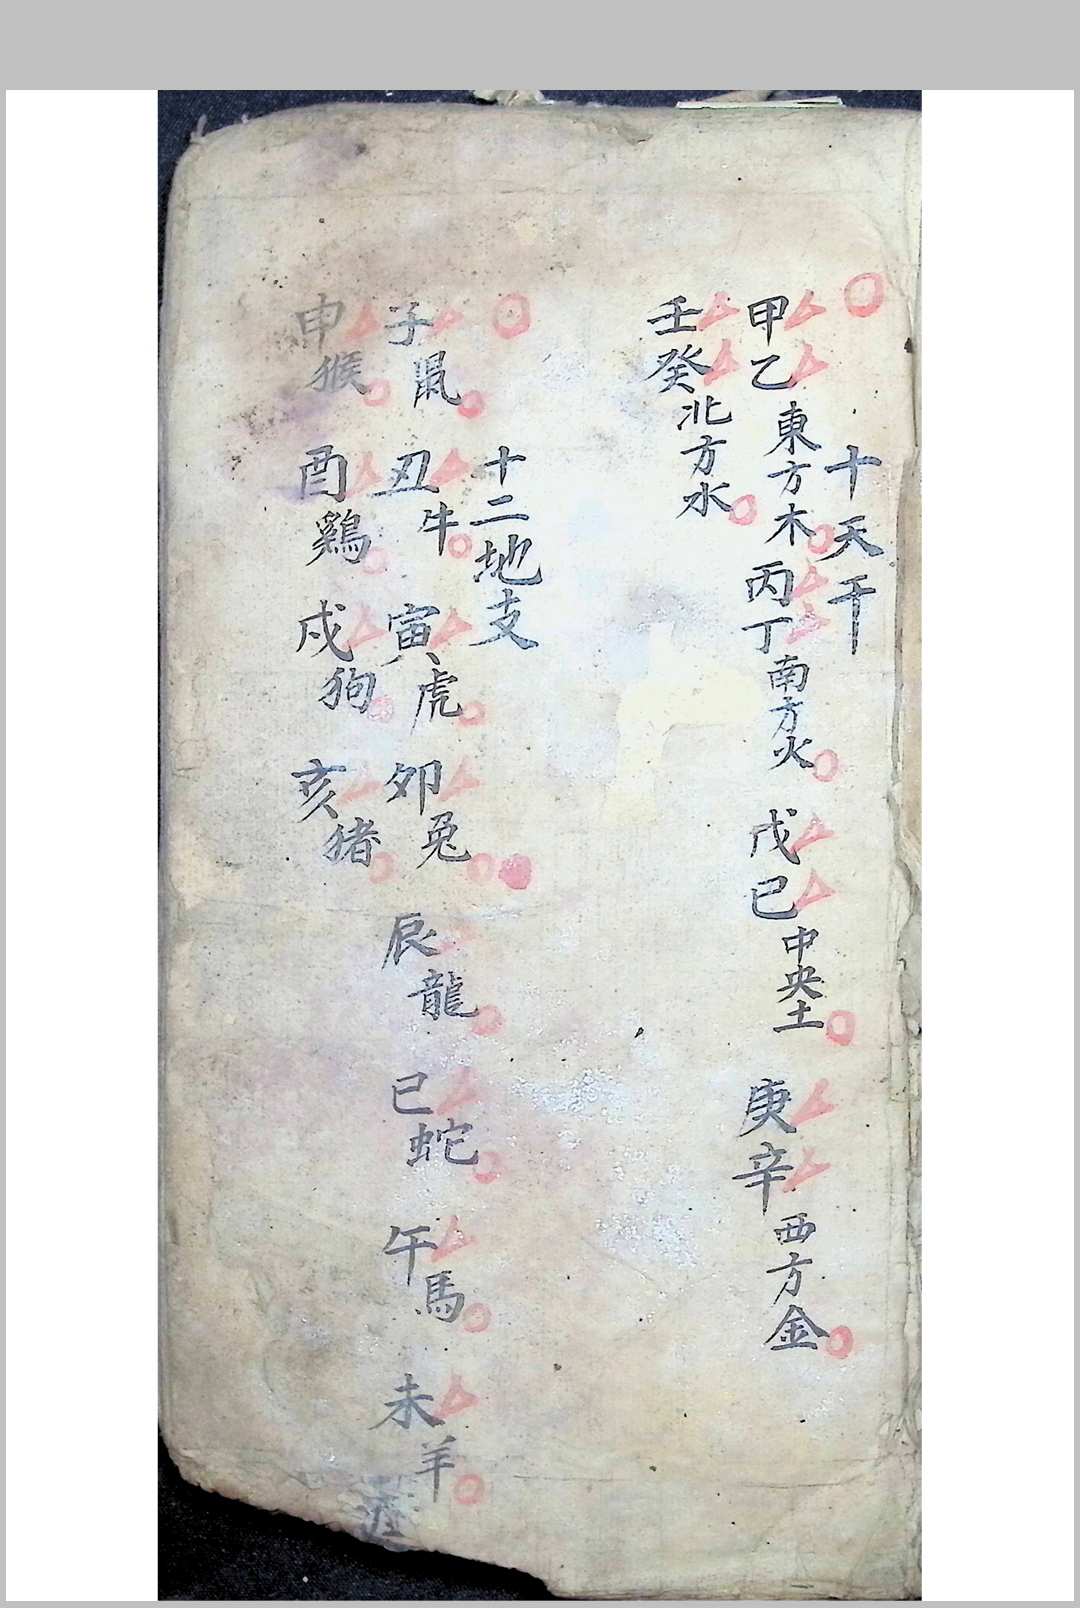 十天干
甲乙東方木丙丁南方火戊己中央土庚辛西方金
壬癸北方水
十二地支
子鼠丑牛寅虎卯兔辰龍巳蛇午馬未羊
申猴酉鷄戌狗亥猪